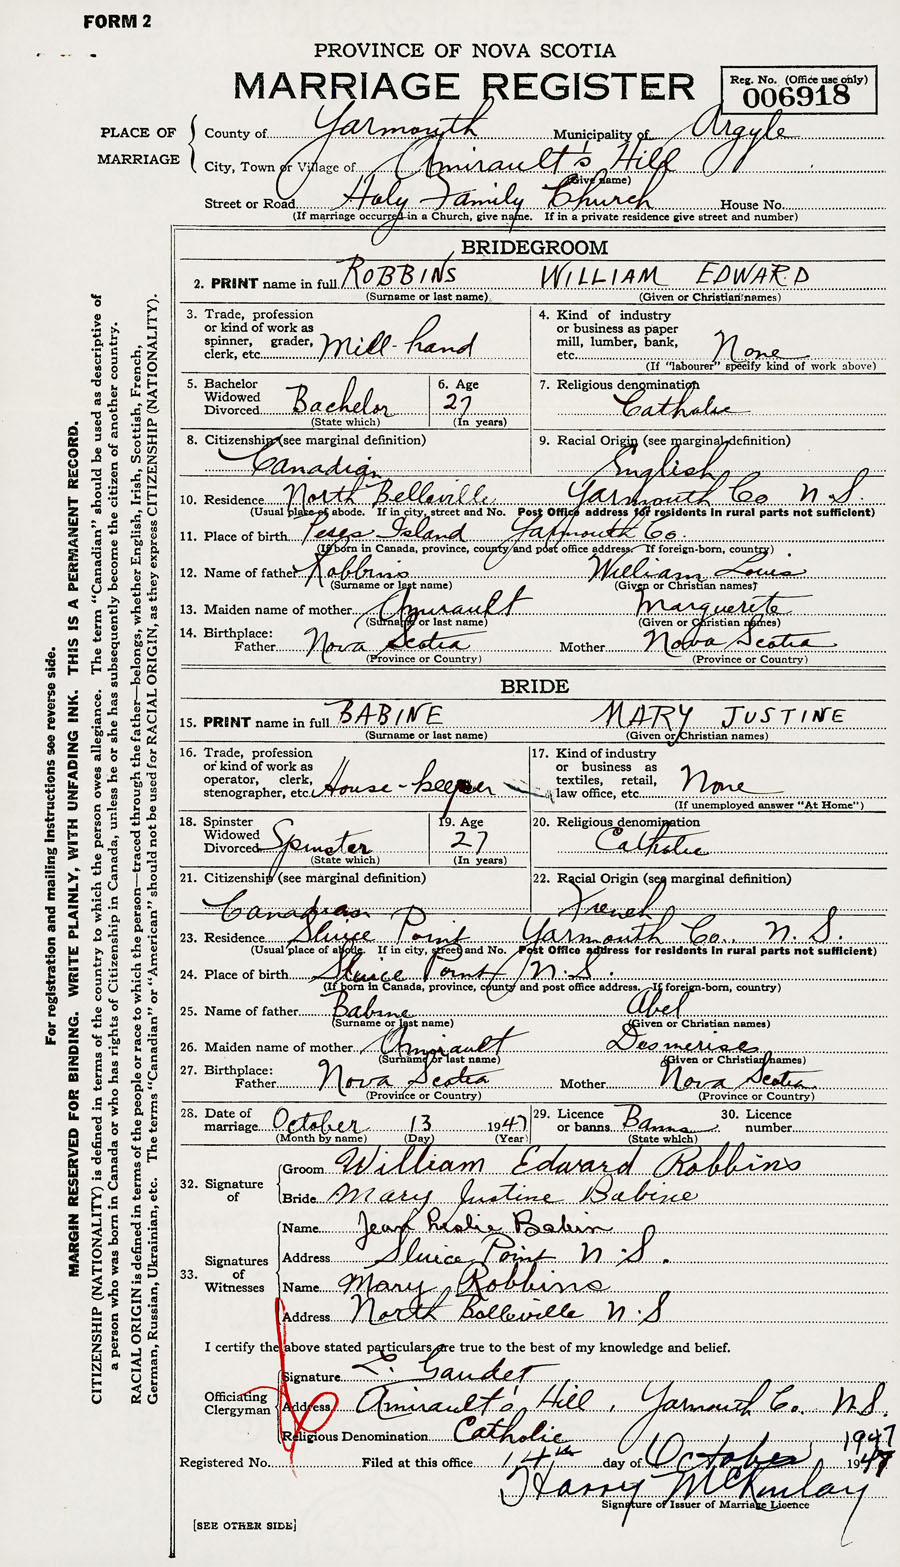 FORM 2
PROVINCE OF NOVA SCOTIA
MARRIAGE REGISTER
Reg. No. (Office use only)
006918
PLACE OF MARRIAGE
County of Yarmouth Municipality of Argyle
City, Town or Village of Amirault's Hill
(Give name)
Street or Road Holy Family Church House No.
(If marriage occurred in a Church, give name. If in a private residence give street and number)
BRIDEGROOM
2. PRINT name in full ROBBINS WILLIAM EDWARD
(Surname or last name) (Given or Christian names)
3. Trade, profession or kind of work as spinner, grader, clerk, etc. Mill-hand
4. Kind of industry or business as paper mill, lumber, bank, etc. None
(If "labourer" specify kind of work above)
5. Bachelor Widowed Divorced Bachelor
(State which)
6. Age 27
(In years)
7. Religious denomination Catholic
8. Citizenship (see marginal definition) Canadian
9. Racial Origin (see marginal definition) English
10. Residence North Belleville Yarmouth Co N.S.
(Usual place of abode. If in city, street and No. Post Office address for residents in rural parts not sufficient)
11. Place of birth Island Yarmouth Co.
(If born in Canada, province, county and post office address. If foreign-born, country)
12. Name of father Robbins William Louis
(Surname or last name) (Given or Christian names)
13. Maiden name of mother Amirault Marguerite
(Surname or last name) (Given or Christian names)
14. Birthplace: Father Nova Scotia Mother Nova Scotia
(Province or Country) (Province or Country)
BRIDE
15. PRINT name in full BABINE MARY JUSTINE
(Surname or last name) (Given or Christian names)
16. Trade, profession or kind of work as operator, clerk, stenographer, etc. House-keeper
17. Kind of industry or business as textiles, retail, law office, etc. None
(If unemployed answer "At Home")
18. Spinster Widowed Divorced Spinster
(State which)
19. Age 27
(In years)
20. Religious denomination Catholic
21. Citizenship (see marginal definition) Canadian
22. Racial Origin (see marginal definition) French
23. Residence Sluice Point Yarmouth Co., N.S.
(Usual place of abode. If in city, street and No. Post Office address for residents in rural parts not sufficient)
24. Place of birth Sluice Point N.S.
(If born in Canada, province, county and post office address. If foreign-born, country)
25. Name of father Babine Abel
(Surname or last name) (Given or Christian names)
26. Maiden name of mother Amirault
(Surname or last name) (Given or Christian names)
27. Birthplace: Father Nova Scotia Mother Nova Scotia
(Province or Country) (Province or Country)
28. Date of marriage October 13 1947
(Month by name) (Day) (Year)
29. Licence or banns Banns
(State which)
30. Licence number
32. Signature of
Groom William Edward Robbins
Bride Mary Justine Babine
33. Signatures of Witnesses
Name Jean Leslie Babin
Address Sluice Point N.S.
Name Mary Robbins
Address North Belleville N.S
I certify the above stated particulars are true to the best of my knowledge and belief.
Officiating Clergyman
Signature Gaudet
Address Amirault's Hill, Yarmouth Co. N.S.
Religious Denomination Catholic
1947
Registered No. Filed at this office 14th day of October 1947
Harry McKinlay
Signature of Issuer of Marriage Licence
[SEE OTHER SIDE]
For registration and mailing instructions see reverse side.
MARGIN RESERVED FOR BINDING. WRITE PLAINLY, WITH UNFADING INK. THIS IS A PERMANENT RECORD.
CITIZENSHIP (NATIONALITY) is defined in terms of the country to which the person owes allegiance. The term "Canadian" should be used as descriptive of
a person who was born in Canada or who has rights of Citizenship in Canada, unless he or she has subsequently become the citizen of another country.
RACIAL ORIGIN is defined in terms of the people or race to which the person—traced through the father—belongs, whether English, Irish, Scottish, French,
German, Russian, Ukrainian, etc. The terms "Canadian" or "American" should not be used for RACIAL ORIGIN, as they express CITIZENSHIP (NATIONALITY).